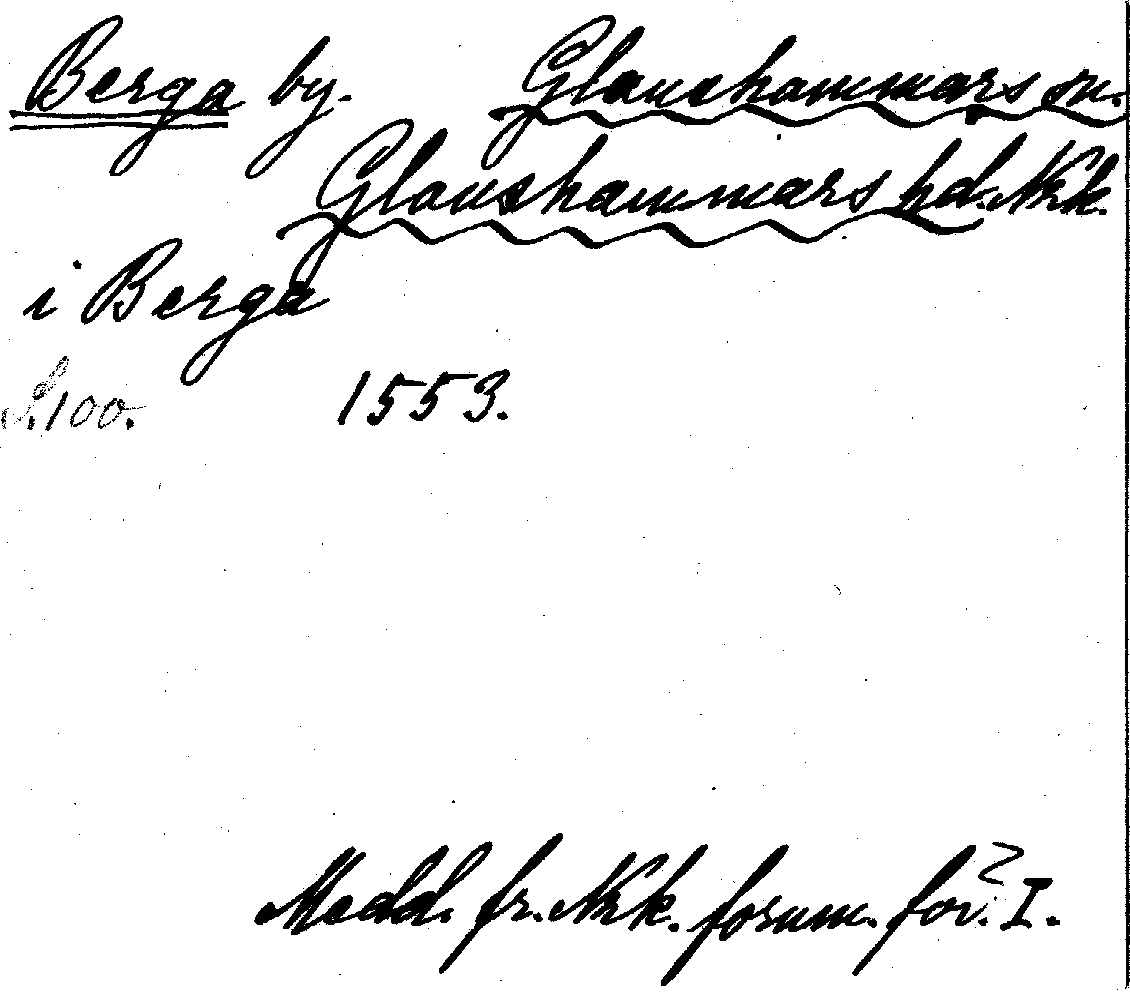 Berga by. Glanshammars sn.
Glanshammars hd. Nrk.
i Berga
S. 100. 1553.
Medd. fr. Nrk. fornm. för. I.